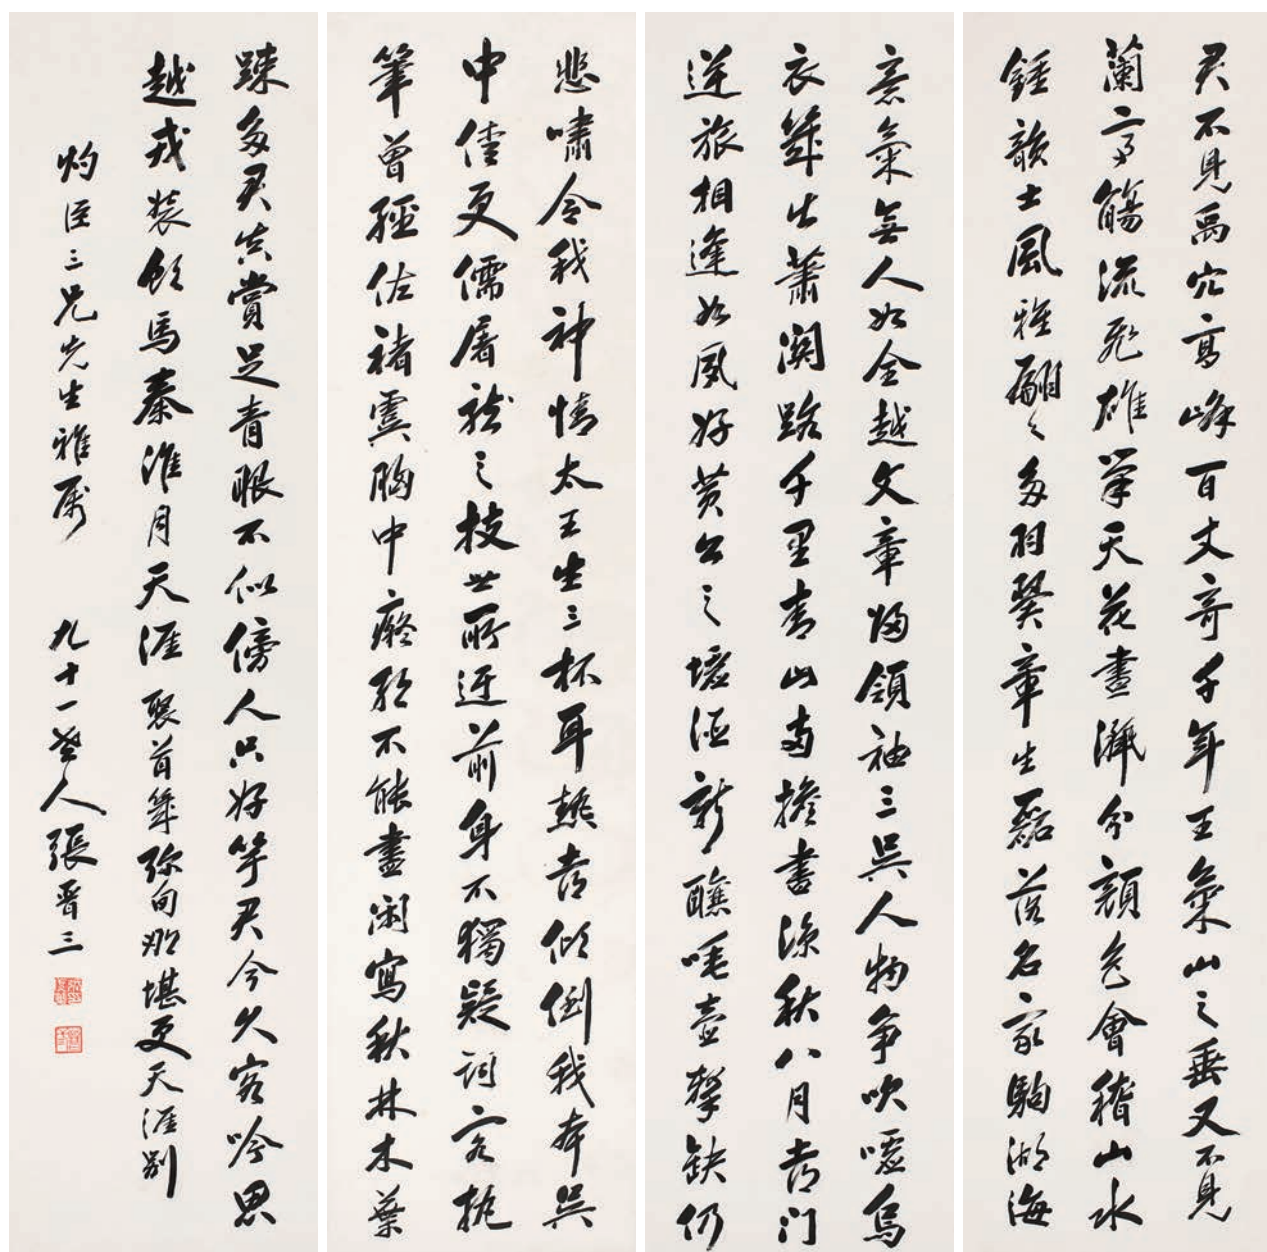 君不見禹穴高峰百丈奇千年王氣山之垂又不見
蘭亭觴流飛雄筆天花畫灑分顏色會稽山水
鍾韻士風雅翩々多羽翼章生磊落名家駒湖海
意氣無人如全越文章歸領袖三吳人物爭吹噓烏
衣年出蕭關路千里青山兩擔書涼秋八月青門
逆旅相逢如夙好黃公之壚酒新醮唾壺擊缺仍
悲嘯令我神情太王生三杯耳熱者傾倒我本吳
中佳更儒屠龍之技世所迂前身不獨疑詞客執
筆曾經佐褚虞胸中癡影不能盡閑寫秋林木葉
踈多君真賞足青眼不似傍人只好竽君今久客吟思
越戎裝飲馬秦淮月天涯聚首年弥旬那堪更天涯別
灼臣三兄先生雅属
九十一叟人張晉三